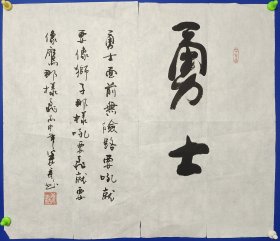 勇士
勇士面前無險路要吼就
要像獅子那樣吼要飛就要
像鷹那樣飛丙申年